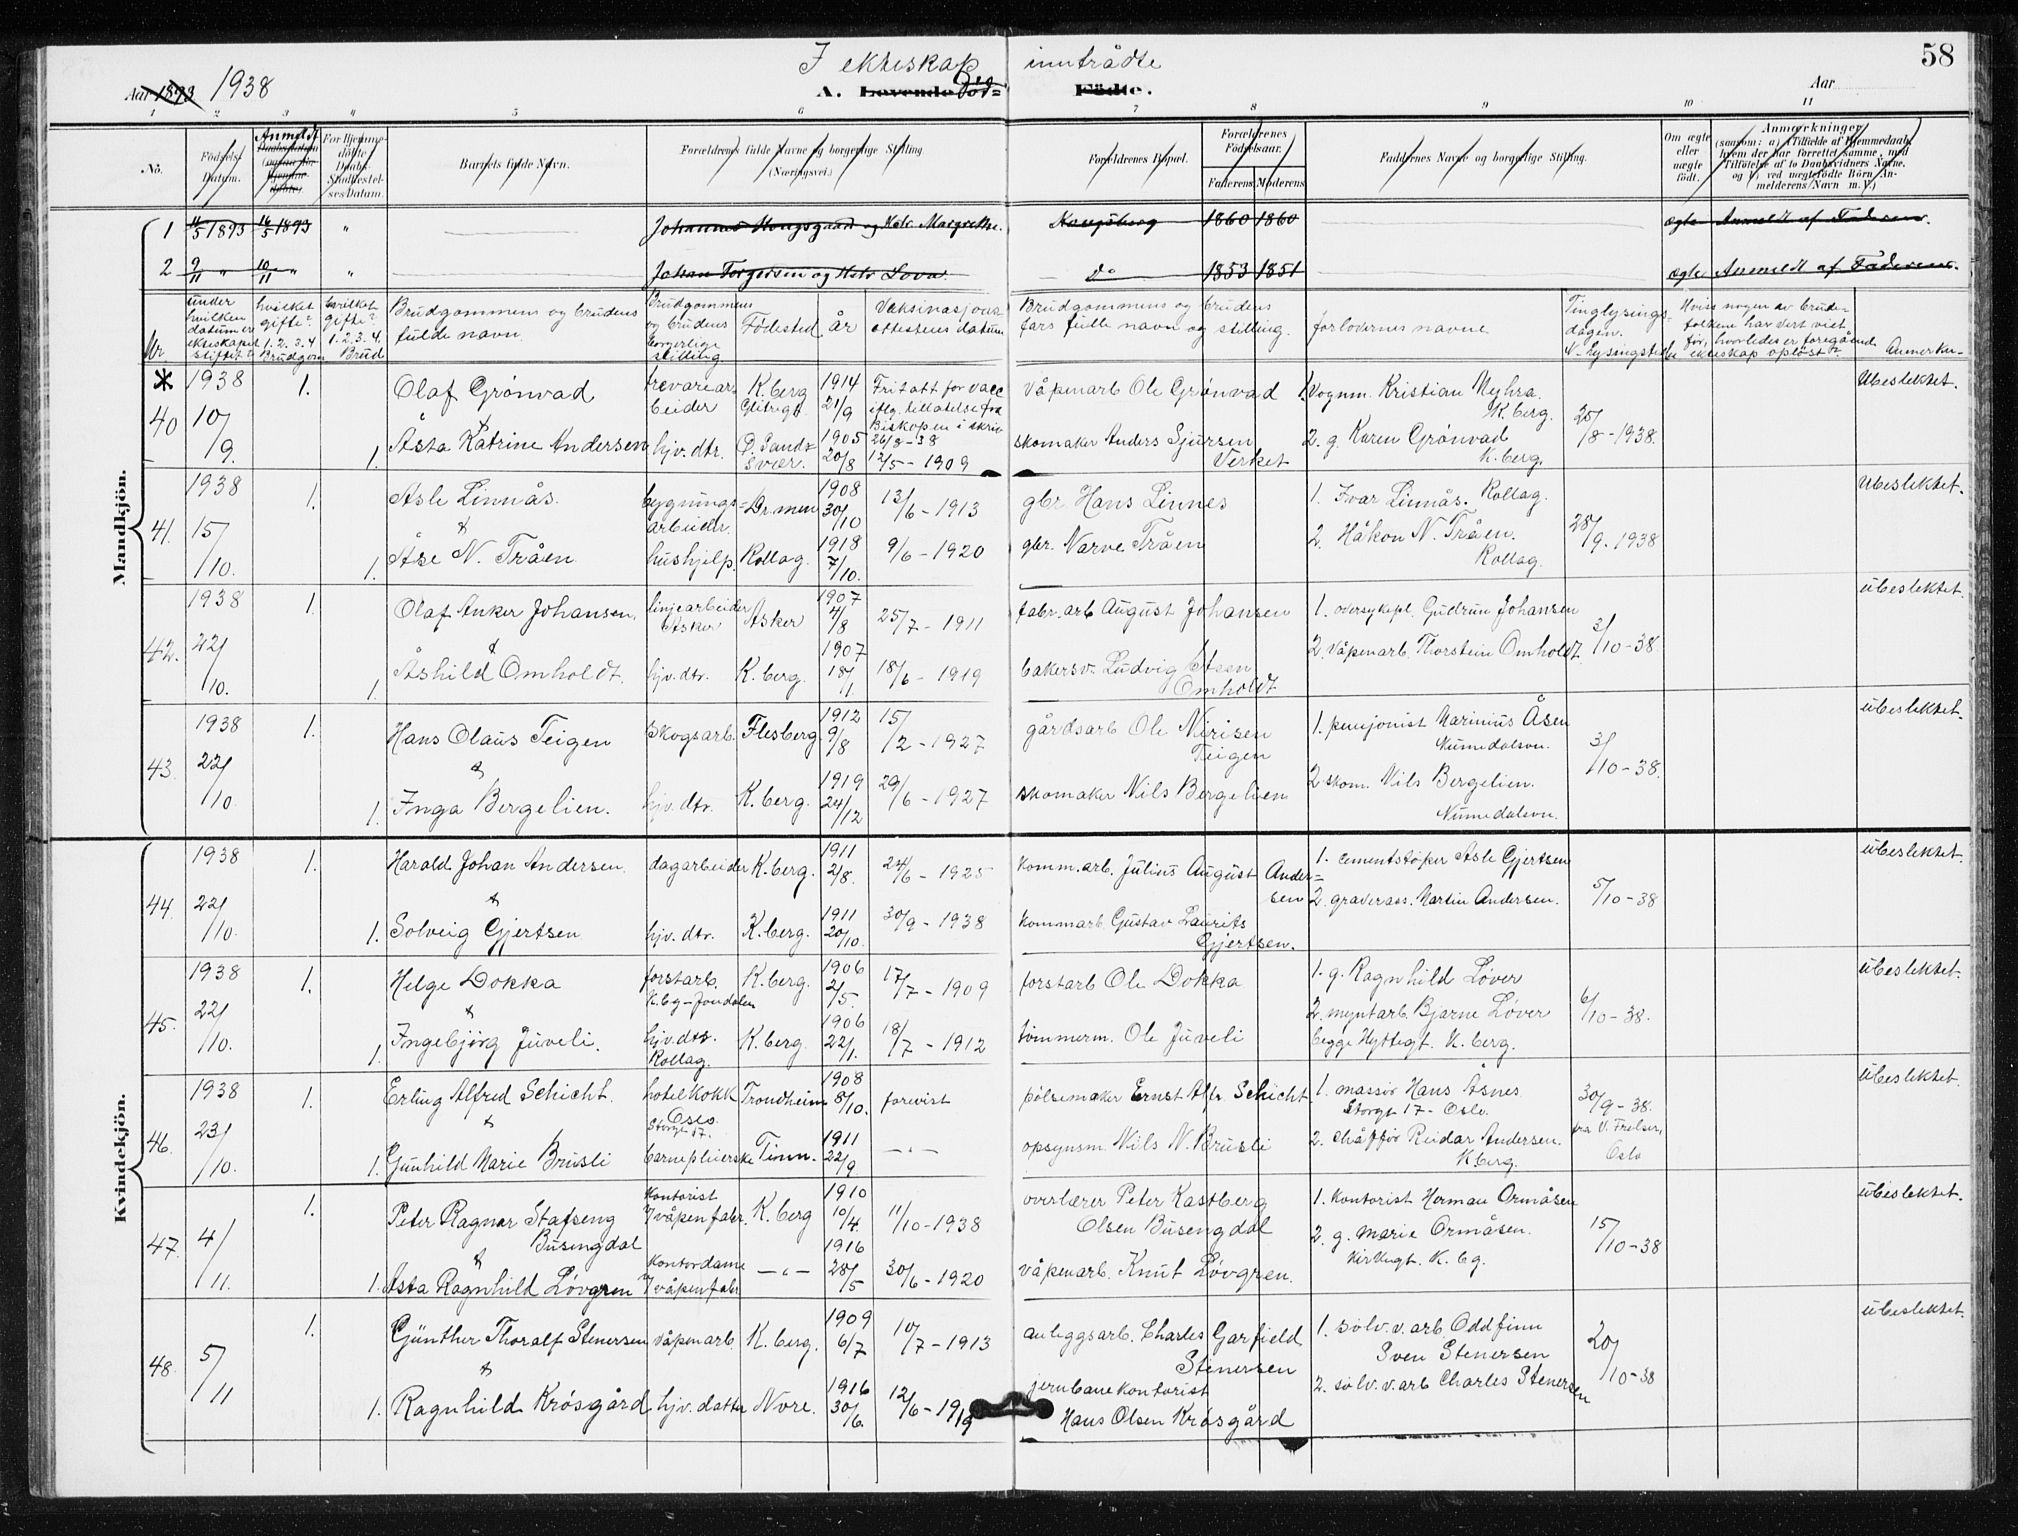 58
I ekteskap inntrådte
Aar 1893 1938
A. Levende fød- Fødte.
Aar
1 2 3 4 5 6 7 8 9 10 11
No.
Fødsels-Datum.
Anmeldt
For Hjemmedøbte Daabs Stadfæstelses Datum.
Barnets fulde Navn.
Forældrenes fulde Navne og borgerlige Stilling
(Næringsvei.)
Forældrenes Bopæl.
Forældrenes Fødselsaar.
Faderens Moderens
Faddernes Navne og borgerlige Stilling.
Om ægte eller uægte født.
Anmærkninger
(saasom: a) i Tilfælde af Hjemmedaab, hvem der har forrettet samme, med Tilføielse af to Daabsvidners Navne, og b) ved uægtefødte Børn Anmelderens Navn m. V.)
1 11/5 1893 16/5 1893 " Johannes Kongsgaard og Hstr. Margrethe. Kongsberg 1860 1860 ægte Anmeldt af Faderen.
2 9/11 " 10/11 " " Johan Torgersen og Hstr Lova do 1853 1851 ægte Anmeldt af Faderen.
Nr. under hvilken datum er ekteskapet stiftet? hvilket gifte? 1. 2. 3. 4 Brudgom hvilket gifte? 1. 2. 3. 4. Brud Brudgommens og brudens fulde navn. Brudgommens og brudens borgerlige stilling Fødested år Vaksinasjons attestens datum Brudgommens og brudens fars fulle navn og stilling. forlovernes navne. Tinglysingsdagen. Hvis nogen av brudefolkene har vært viet før, hvorledes er foregående ekteskap opløst? Anmerkn-
Mandkjön.
40 1938 10/9 1. Olaf Grönvad trevarearbeider K.berg 1914 21/9 Fritatt for vacc iflg. tillatelse fra Biskopen i skriv 26/8-38 våpenarb Ole Grönvad 1. Vognm. Kristian Myhra. K.berg. 25/8-1938. Ubeslektet.
1. Åsta Katrine Andersen hjv. dtr. Ø. Sandsvær. 1905 20/8 12/5-1909 skomaker Anders Sjursen Verket 2. g. Karen Grönvad K.berg.
41. 1938 15/10. 1. Asle Linnås. & bygningsarbeider. Dr.men 1908 30/10 13/6-1913 gbr Hans Linnes 1. Ivar Linnås. Rollag. 28/9. 1938 Ubeslektet.
1. Åse N. Tråen hushjelp. Rollag. 1918 7/10. 9/6-1920 gbr. Narve Tråen 2. Håkon N. Tråen. Rollag.
42. 1938 22/10. 1. Olaf Anker Johansen, & linjearbeider Asker Asker 1907 4/8 25/7-1911 fabr.arb August Johansen 1. oversykepl. Gudrun Johansen 3/10-38. Ubeslektet.
1. Åshild Omholdt. hjv. dtr. K.berg. 1907 18/1 18/6-1919 bakersv. Ludvig Steen Omholdt 2. våpenarb. Thorstein Omholdt.
43. 1938 22/10 1. Hans Olaus Teigen & skogsarb. Flesberg 1912 9/8 15/2-1927 gårdsarb Ole Nirisen Teigen 1. pensjonist Marinius Åsen Numedalsvn. 3/10-38. Ubeslektet.
1. Inga Bergelien. hjv. dtr. K.berg. 1919 24/12 29/6-1927 skomaker Nils Bergelien 2 skom. Nils Bergelien. Numedalsvn.
Kvindekjön.
44. 1938 22/10. 1. Harald Johan Andersen. & dagarbeider K.berg. 1911 2/8. 24/6-1925 komm.arb. Julius August Andersen 1. cementstøper Asle Gjertsen 5/10-38 Ubeslektet.
1. Solveig Gjertsen hjv. dtr. K.berg. 1911 20/10. 30/9-1938 kommarb Gustav Laurits Gjertsen. 2. graverass. Martin Andersen.
45. 1938 22/10. 1. Helge Dokka & forstarb. K.bg-Jondalen K.berg. 1906 2/5. 17/7-1909 forstarb Ole Dokka 1. g. Ragnhild Løver 6/10-38. Ubeslektet.
1. Ingebjörg Juveli. hjv. dtr. Rollag. K.berg. 1906 22/1. 18/7-1912 tömmerm. Ole Juveli 2. myntarb. Bjarne Løver begge Hyttegt. K.berg.
46. 1938 23/10. 1. Erling Alfred Schicht. & hotelkokk Oslo. Storgt 17. Trondheim 1908 8/10. forevist pölsemaker Ernst Alfr. Schicht. 1. massör Hans Åsnes Storgt 17- Oslo. 30/9-38. fra V. Frelser, Oslo Ubeslektet.
1. Gunhild Marie Brusli barnepleierske Tinn. 1911 22/9 - " - opsynsm. Nils N. Brusli 2. chåfför Reidar Andersen. K.berg.
47. 4/11. 1. Peter Ragnar Stafseng Busengdal & kontorist v/våpenfabr. K.berg 1910 10/4. 11/10-1938 overlærer Peter Kastberg Olsen Busengdal 1. kontorist Herman Ormåsen 15/10-38 Ubeslektet.
1. Asta Ragnhild Lövgren kontordame v/våpenfabr - " - 1916 28/5 30/6-1920 våpenarb. Knut Lövgren. 2. g. Marie Ormåsen. Kirkegt. K.bg.
48. 5/11 1. Günther Thoralf Stenersen & våpenarb. K.berg. 1909 6/7 10/7-1913 anleggsarb. Charles Garfield Stenersen 1. sölv.v.arb. Oddfinn Sven Stenersen 20/10-38 Ubeslektet.
1. Ragnhild Krösgård hjv. datter Nore. 1916 30/6. 12/6-1919 jernbanekontorist Hans Olsen Krösgård 2. sölv.v.arb Charles Stenersen